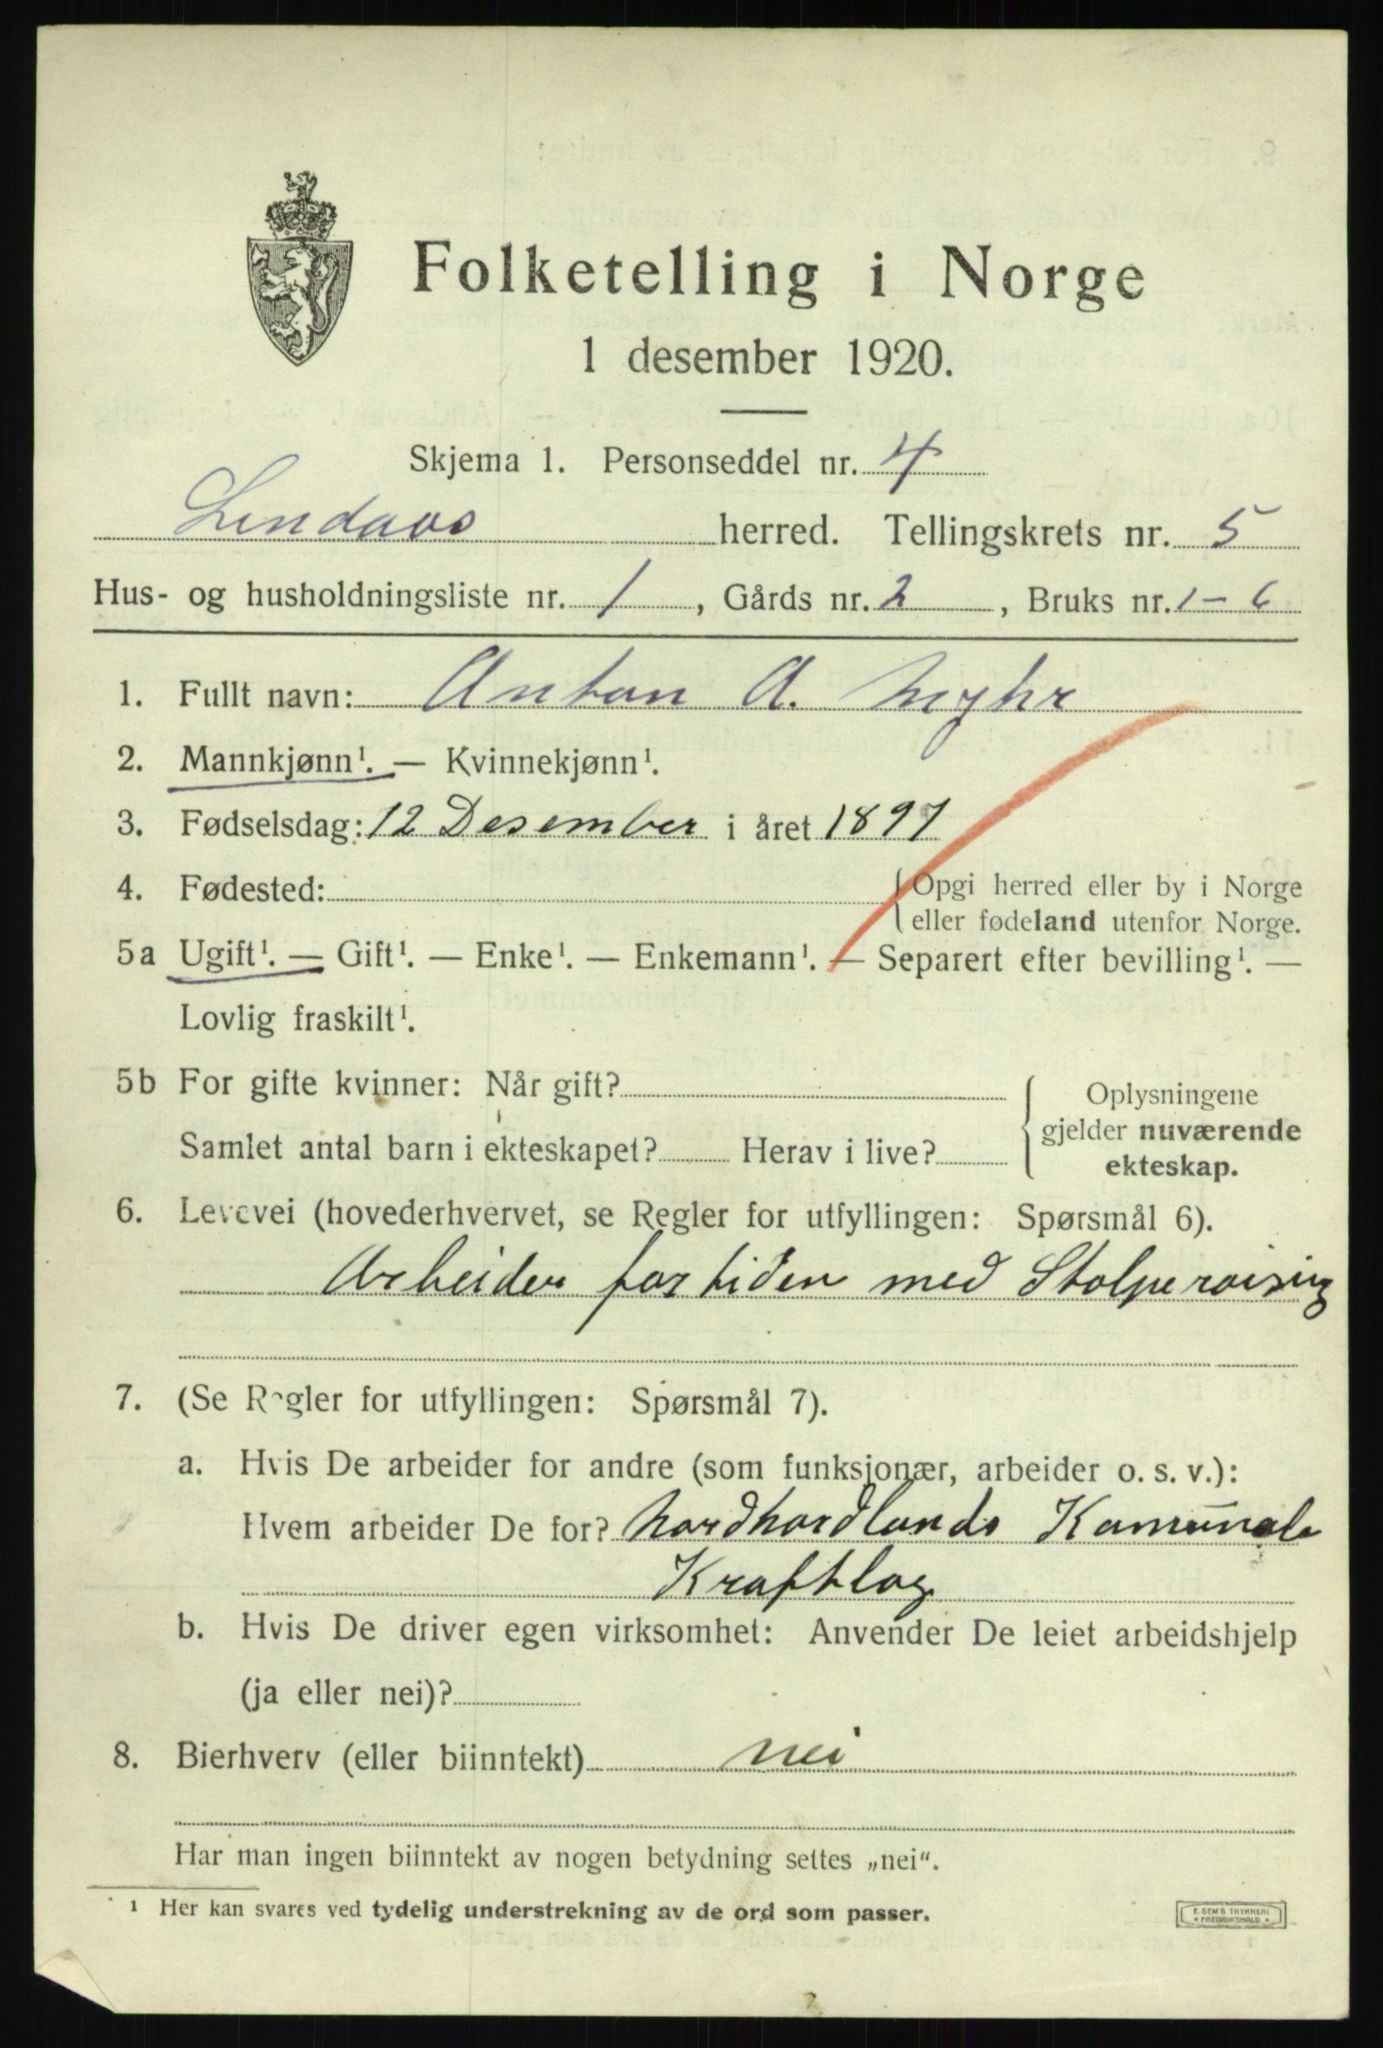 Folketelling i Norge
1 desember 1920.
Skjema 1. Personseddel nr. 4
Lindaas herred. Tellingskrets nr. 5
Hus- og husholdningsliste nr. 1, Gårds nr. 2, Bruks nr. 1-6
1. Fullt navn: Anton A. Myhr
2. Mannkjønn¹. — Kvinnekjønn¹.
3. Fødselsdag: 12 Desember i året 1897
4. Fødested: {Opgi herred eller by i Norge
eller fødeland utenfor Norge.
5a Ugift¹. — Gift¹. — Enke¹. — Enkemann¹. — Separert efter bevilling¹. —
Lovlig fraskilt¹.
5b For gifte kvinner: Når gift? { Oplysningene
gjelder nuværende
Samlet antal barn i ekteskapet? Herav i live?
ekteskap.
6. Levevei (hovederhvervet, se Regler for utfyllingen: Spørsmål 6).
Arbeider for tiden med Stolperaising
7. (Se Regler for utfyllingen: Spørsmål 7).
a. Hvis De arbeider for andre (som funksjonær, arbeider o. s. v.):
Hvem arbeider De for? Nordhordlands Kamunale
Kraftlag
b. Hvis De driver egen virksomhet: Anvender De leiet arbeidshjelp
(ja eller nei)?
8. Bierhverv (eller biinntekt) nei
Har man ingen biinntekt av nogen betydning settes „nei“.
¹ Her kan svares ved tydelig understrekning av de ord som passer.
E. SEM'S TRYKKERI
* FREDRIKSHALD *